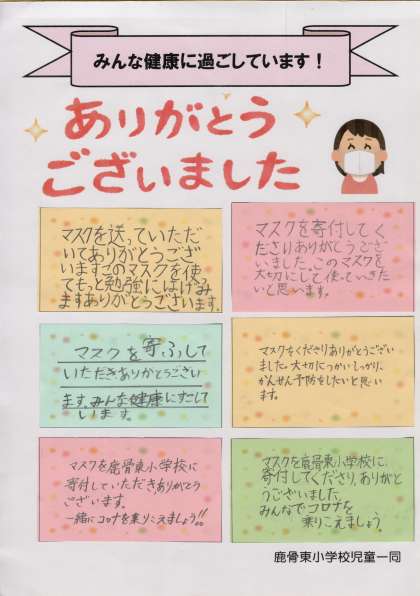 みんな健康に過ごしています！
ありがとう
ございました
マスクを送っていただ
いてありがとうござ
いますこのマスクを使っ
てもっと勉強にはげみ
ますありがとうございます。
マスクを寄付してく
ださりありがとうござ
いました。このマスクを
大切にして使っていきた
いと思います。
マスクを寄ふして
いただきありがとうござい
ます。みんな健康にすごして
います。
マスクをくださりありがとうござい
ました。大切につかいしっかり、
かんせん予防をしたいと思い
ます。
マスクを鹿骨東小学校に
寄付していただきありがとう
ございます。
一緒にコロナを乗りこえましょう!!
マスクを鹿骨東小学校に、
寄付してくださり、ありがと
うございました。
みんなでコロナを
乗りこえましょう。
鹿骨東小学校児童一同